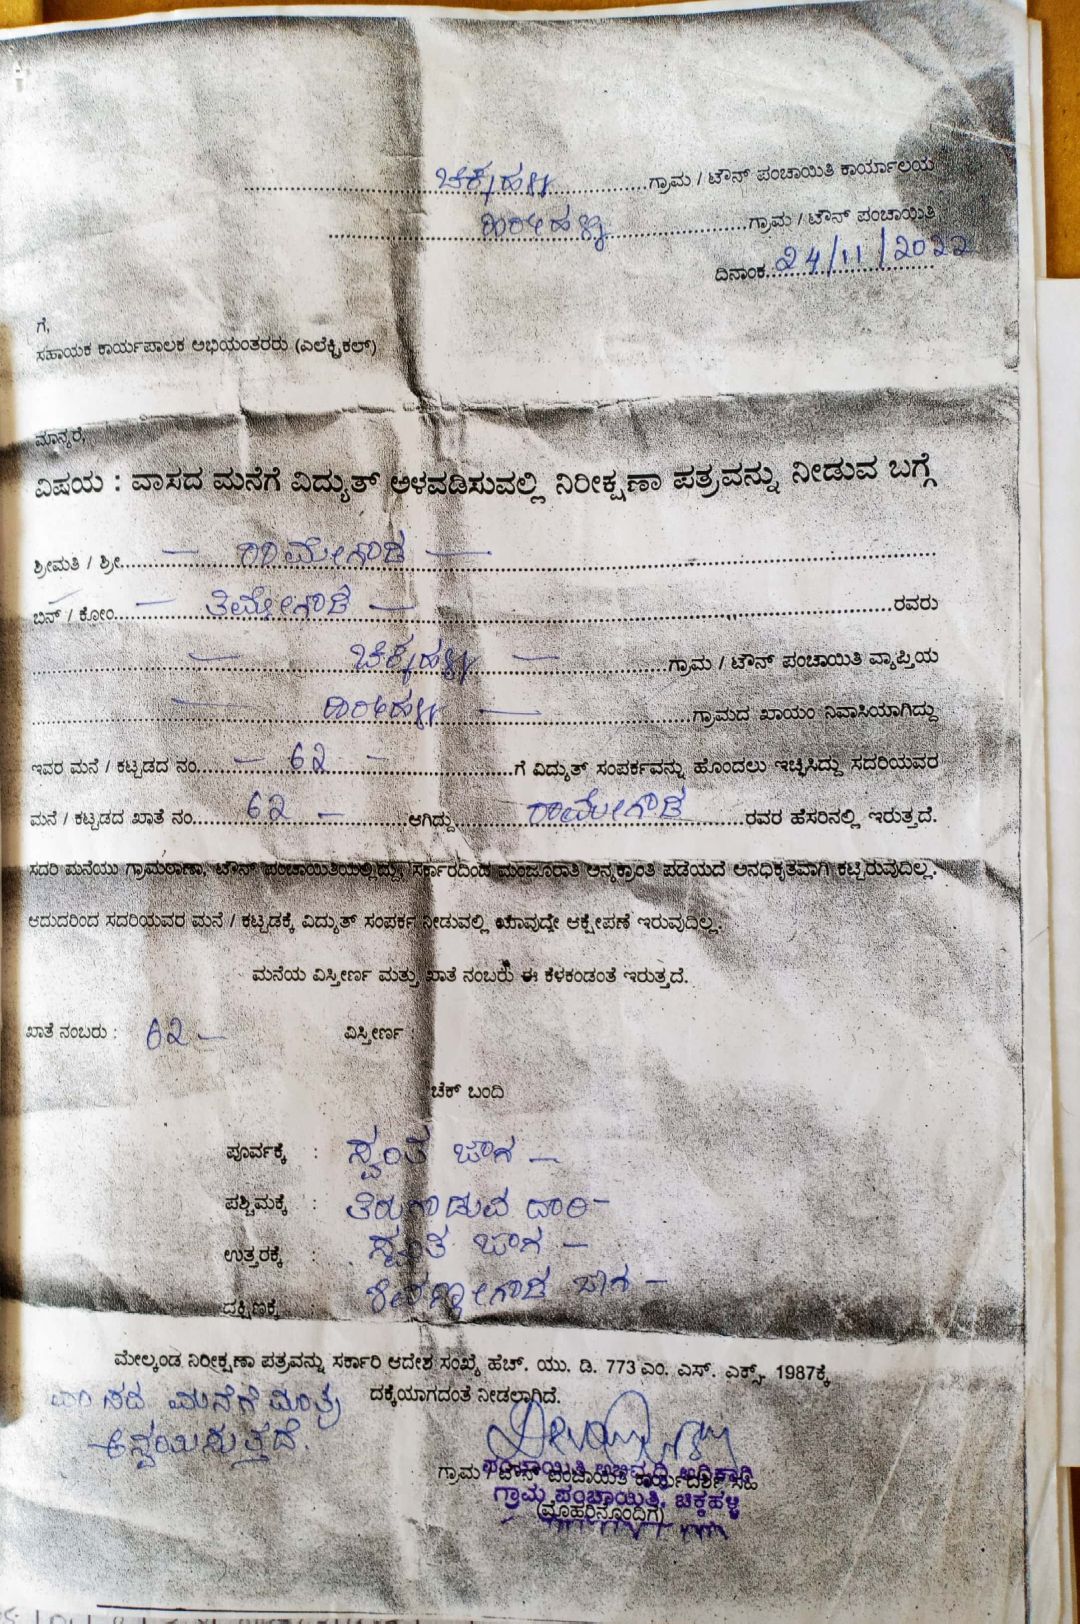 ಚಿಕ್ಕಹಳ್ಳಿ ಗ್ರಾಮ / ಟೌನ್ ಪಂಚಾಯಿತಿ ಕಾರ್ಯಾಲಯ
ಗ್ರಾಮ / ಟೌನ್ ಪಂಚಾಯಿತಿ
ದಿನಾಂಕ 24/11/2022
ಗೆ,
ಸಹಾಯಕ ಕಾರ್ಯಪಾಲಕ ಅಭಿಯಂತರರು (ಎಲೆಕ್ಟ್ರಿಕಲ್)
ಮಾನ್ಯರೆ,
ವಿಷಯ : ವಾಸದ ಮನೆಗೆ ವಿದ್ಯುತ್ ಅಳವಡಿಸುವಲ್ಲಿ ನಿರೀಕ್ಷಣಾ ಪತ್ರವನ್ನು ನೀಡುವ ಬಗ್ಗೆ
ಶ್ರೀಮತಿ / ಶ್ರೀ — ರಾಮೇಗೌಡ —
ಬಿನ್ / ಕೋಂ — ತಿಮ್ಮೇಗೌಡ — ರವರು
— ಚಿಕ್ಕಹಳ್ಳಿ — ಗ್ರಾಮ / ಟೌನ್ ಪಂಚಾಯಿತಿ ವ್ಯಾಪ್ತಿಯ
ಗ್ರಾಮದ ಖಾಯಂ ನಿವಾಸಿಯಾಗಿದ್ದು
ಇವರ ಮನೆ / ಕಟ್ಟಡದ ನಂ. — 62 — ಗೆ ವಿದ್ಯುತ್ ಸಂಪರ್ಕವನ್ನು ಹೊಂದಲು ಇಚ್ಛಿಸಿದ್ದು ಸದರಿಯವರ
ಮನೆ / ಕಟ್ಟಡದ ಖಾತೆ ನಂ. 62 — ಆಗಿದ್ದು ರಾಮೇಗೌಡ ರವರ ಹೆಸರಿನಲ್ಲಿ ಇರುತ್ತದೆ.
ಸದರಿ ಮನೆಯು ಗ್ರಾಮಠಾಣಾ, ಟೌನ್ ಪಂಚಾಯಿತಿಯಲ್ಲಿದ್ದು, ಸರ್ಕಾರದಿಂದ ಮಂಜೂರಾತಿ ಅನ್ಯಕ್ರಾಂತಿ ಪಡೆಯದೆ ಅನಧಿಕೃತವಾಗಿ ಕಟ್ಟಿರುವುದಿಲ್ಲ.
ಆದುದರಿಂದ ಸದರಿಯವರ ಮನೆ / ಕಟ್ಟಡಕ್ಕೆ ವಿದ್ಯುತ್ ಸಂಪರ್ಕ ನೀಡುವಲ್ಲಿ ಯಾವುದೇ ಆಕ್ಷೇಪಣೆ ಇರುವುದಿಲ್ಲ.
ಮನೆಯ ವಿಸ್ತೀರ್ಣ ಮತ್ತು ಖಾತೆ ನಂಬರು ಈ ಕೆಳಕಂಡಂತೆ ಇರುತ್ತದೆ.
ಖಾತೆ ನಂಬರು : 62 — ವಿಸ್ತೀರ್ಣ :
ಚೆಕ್ ಬಂದಿ
ಪೂರ್ವಕ್ಕೆ : ಸ್ವಂತ ಜಾಗ —
ಪಶ್ಚಿಮಕ್ಕೆ : ತಿರುಗಾಡುವ ದಾರಿ —
ಉತ್ತರಕ್ಕೆ : ಸ್ವಂತ ಜಾಗ —
ದಕ್ಷಿಣಕ್ಕೆ : ಜಾಗ —
ಮೇಲ್ಕಂಡ ನಿರೀಕ್ಷಣಾ ಪತ್ರವನ್ನು ಸರ್ಕಾರಿ ಆದೇಶ ಸಂಖ್ಯೆ ಹೆಚ್. ಯು. ಡಿ. 773 ಎಂ. ಎಸ್. ಎಕ್ಸ್. 1987ಕ್ಕೆ
ದಕ್ಕೆಯಾಗದಂತೆ ನೀಡಲಾಗಿದೆ.
ವಾಸದ ಮನೆಗೆ ಮಾತ್ರ
ಅನ್ವಯಿಸುತ್ತದೆ.
ಪಂಚಾಯಿತಿ ಅಭಿವೃದ್ಧಿ ಅಧಿಕಾರಿ
ಗ್ರಾಮ / ಟೌನ್ ಪಂಚಾಯಿತಿ ಕಾರ್ಯದರ್ಶಿ ಸಹಿ
ಗ್ರಾಮ ಪಂಚಾಯಿತಿ, ಚಿಕ್ಕಹಳ್ಳಿ
(ಮೊಹರಿನೊಂದಿಗೆ)